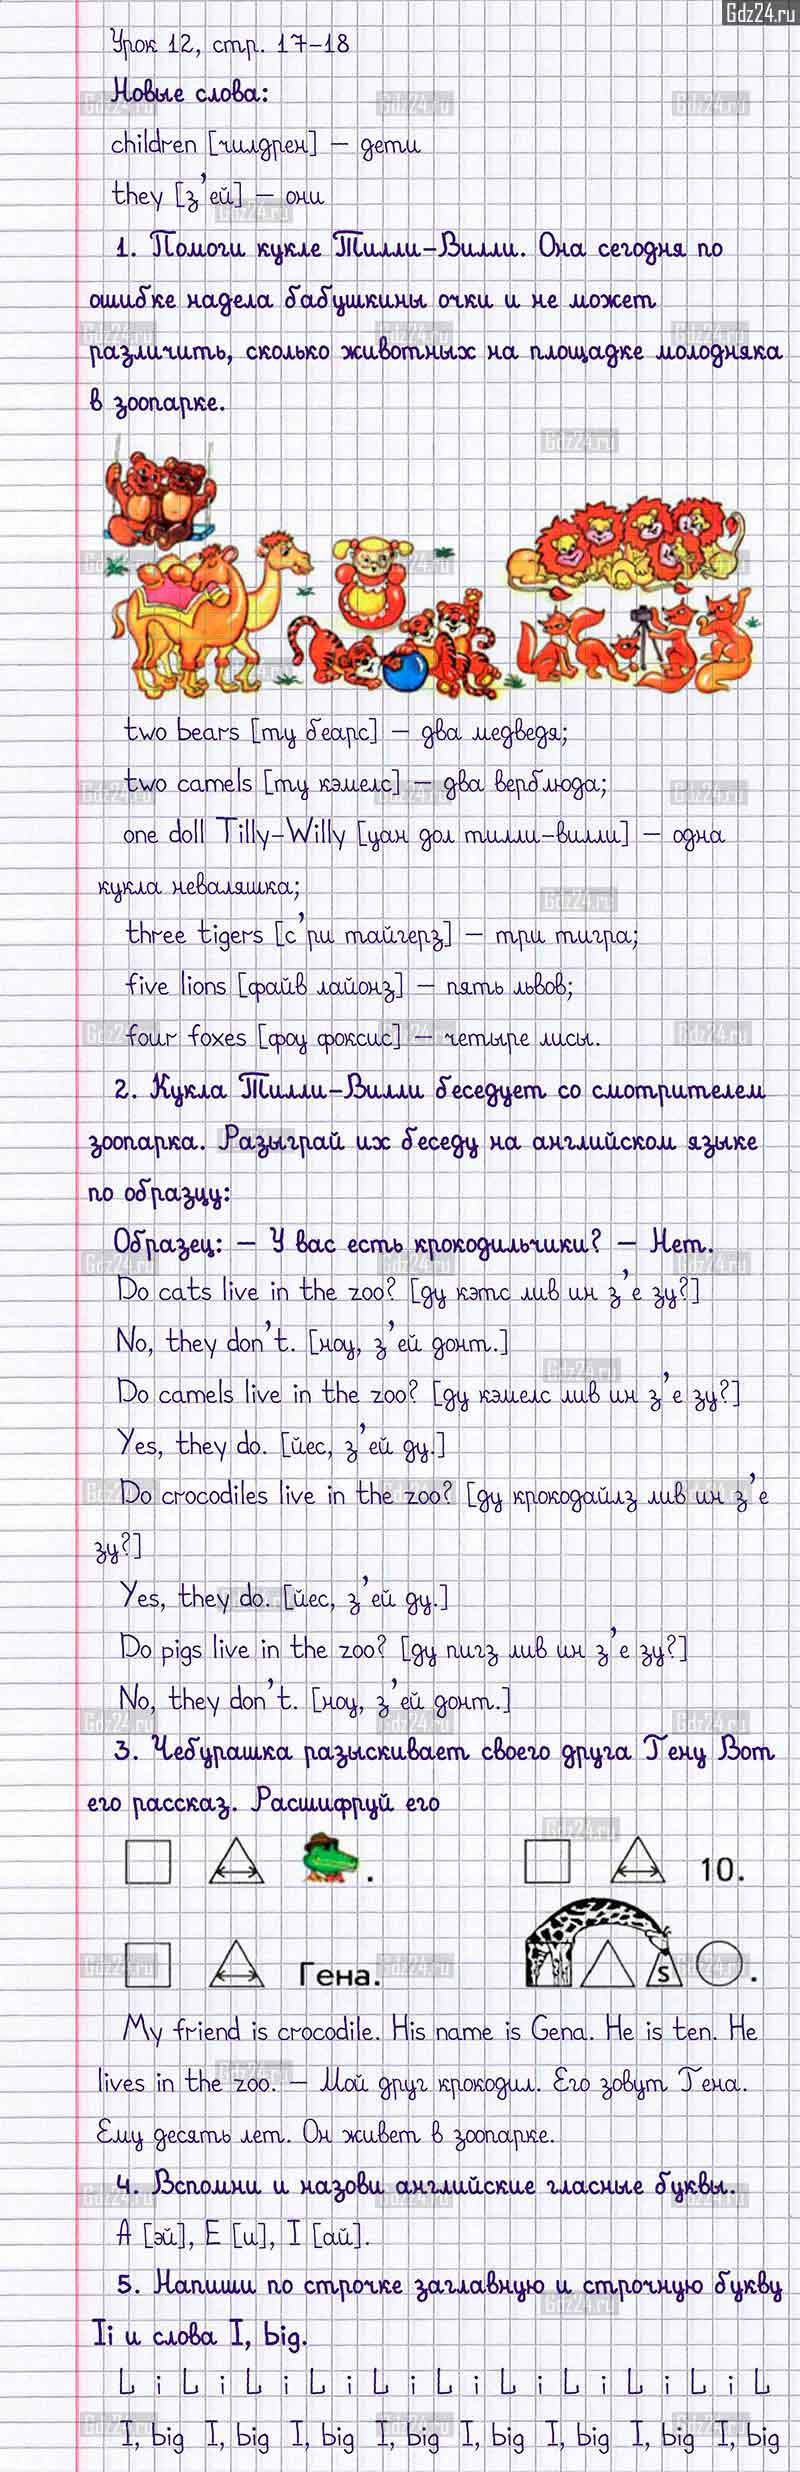 Gdz24.ru
Урок 12, стр. 17-18
Новые слова:
children [чилдрен] – дети
they [з’ей] – они
1. Помоги кукле Тилли-Вилли. Она сегодня по
ошибке надела бабушкины очки и не может
различить, сколько животных на площадке молодняка
в зоопарке.
two bears [ту беарс] – два медведя;
two camels [ту кэмелс] – два верблюда;
one doll Tilly-Willy [уан дол тилли-вилли] – одна
кукла неваляшка;
three tigers [с’ри тайгерз] – три тигра;
five lions [файв лайонз] – пять львов;
four foxes [фоу фоксис] – четыре лисы.
2. Кукла Тилли-Вилли беседует со смотрителем
зоопарка. Разыграй их беседу на английском языке
по образцу:
Образец: – У вас есть крокодильчики? – Нет.
Do cats live in the zoo? [ду кэтс лив ин з’е зу?]
No, they don’t. [ноу, з’ей донт.]
Do camels live in the zoo? [ду кэмелс лив ин з’е зу?]
Yes, they do. [йес, з’ей ду.]
Do crocodiles live in the zoo? [ду крокодайлз лив ин з’е
зу?]
Yes, they do. [йес, з’ей ду.]
Do pigs live in the zoo? [ду пигз лив ин з’е зу?]
No, they don’t. [ноу, з’ей донт.]
3. Чебурашка разыскивает своего друга Гену Вот
его рассказ. Расшифруй его
. 10.
Гена. s .
My friend is crocodile. His name is Gena. He is ten. He
lives in the zoo. – Мой друг крокодил. Его зовут Гена.
Ему десять лет. Он живет в зоопарке.
4. Вспомни и назови английские гласные буквы.
A [эй], E [и], I [ай].
5. Напиши по строчке заглавную и строчную букву
Ii и слова I, big.
L i L i L i L i L i L i L i L i L i L i L
I, big I, big I, big I, big I, big I, big I, big I, big